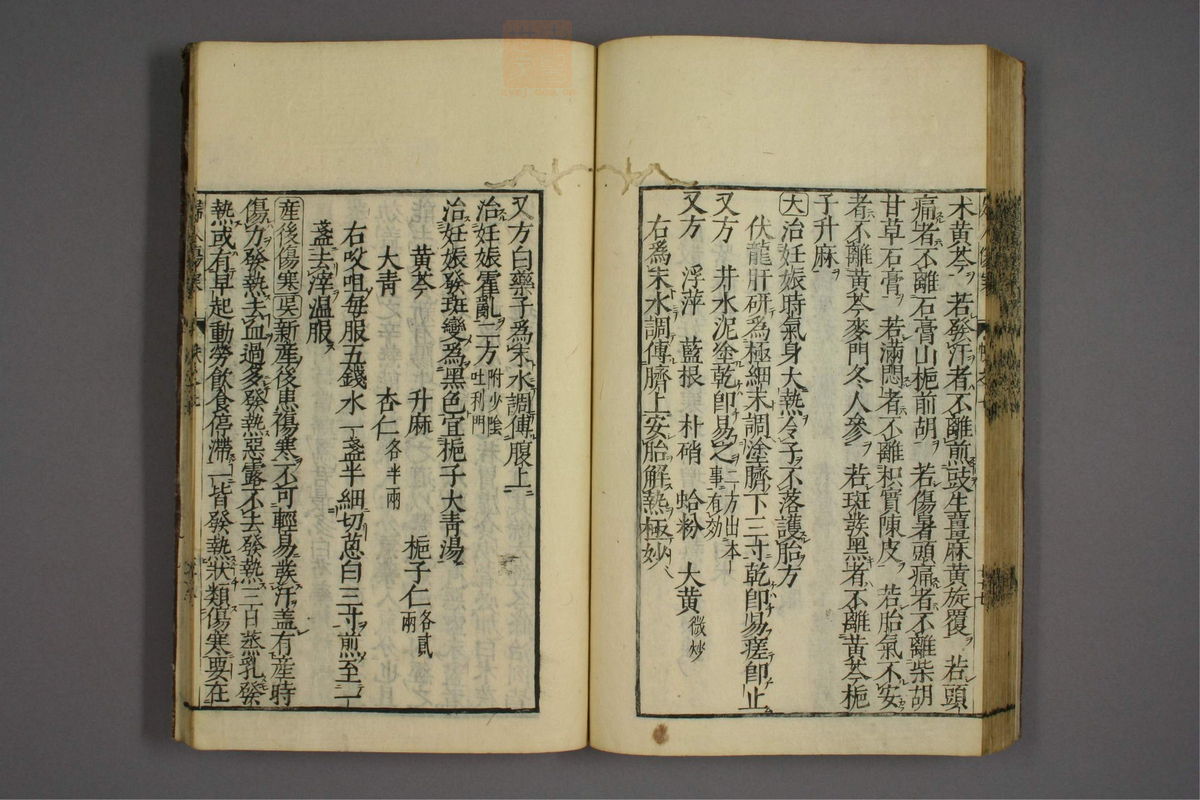 朮黃芩 若發汗者不離煎豉生薑麻黃旋覆 若頭
痛者不離石膏山梔前胡 若傷暑頭痛者不離柴胡
甘草石膏 若滿悶者不離枳實陳皮 若胎氣不安
者不離黃芩麥門冬人參 若斑發黑者不離黃芩梔
子升麻
大治妊娠時氣身大熱冷子不落護胎方
伏龍肝研爲極細末調塗臍下三寸乾即易瘥即止
又方 井水泥塗乾即易之二方出本事有効
又方 浮萍 藍根 朴硝 蛤粉 大黃微炒
右爲末水調傅臍上安胎解熱極妙
又方白藥子爲末水調傅腹上
治妊娠霍亂二方附少陰吐利門
治妊娠發斑變爲黑色宜梔子大青湯
黃芩 升麻 梔子仁各貳兩
大青 杏仁各半兩
右㕮咀每服五錢水一盞半細切葱白三寸煎至一
盞去滓温服
産後傷寒 新産後患傷寒不可輕易發汗盖有産時
傷力發熱去血過多發熱惡露不去發熱三日蒸乳發
熱或有早起動勞飲食停滯一皆發熱狀類傷寒要在